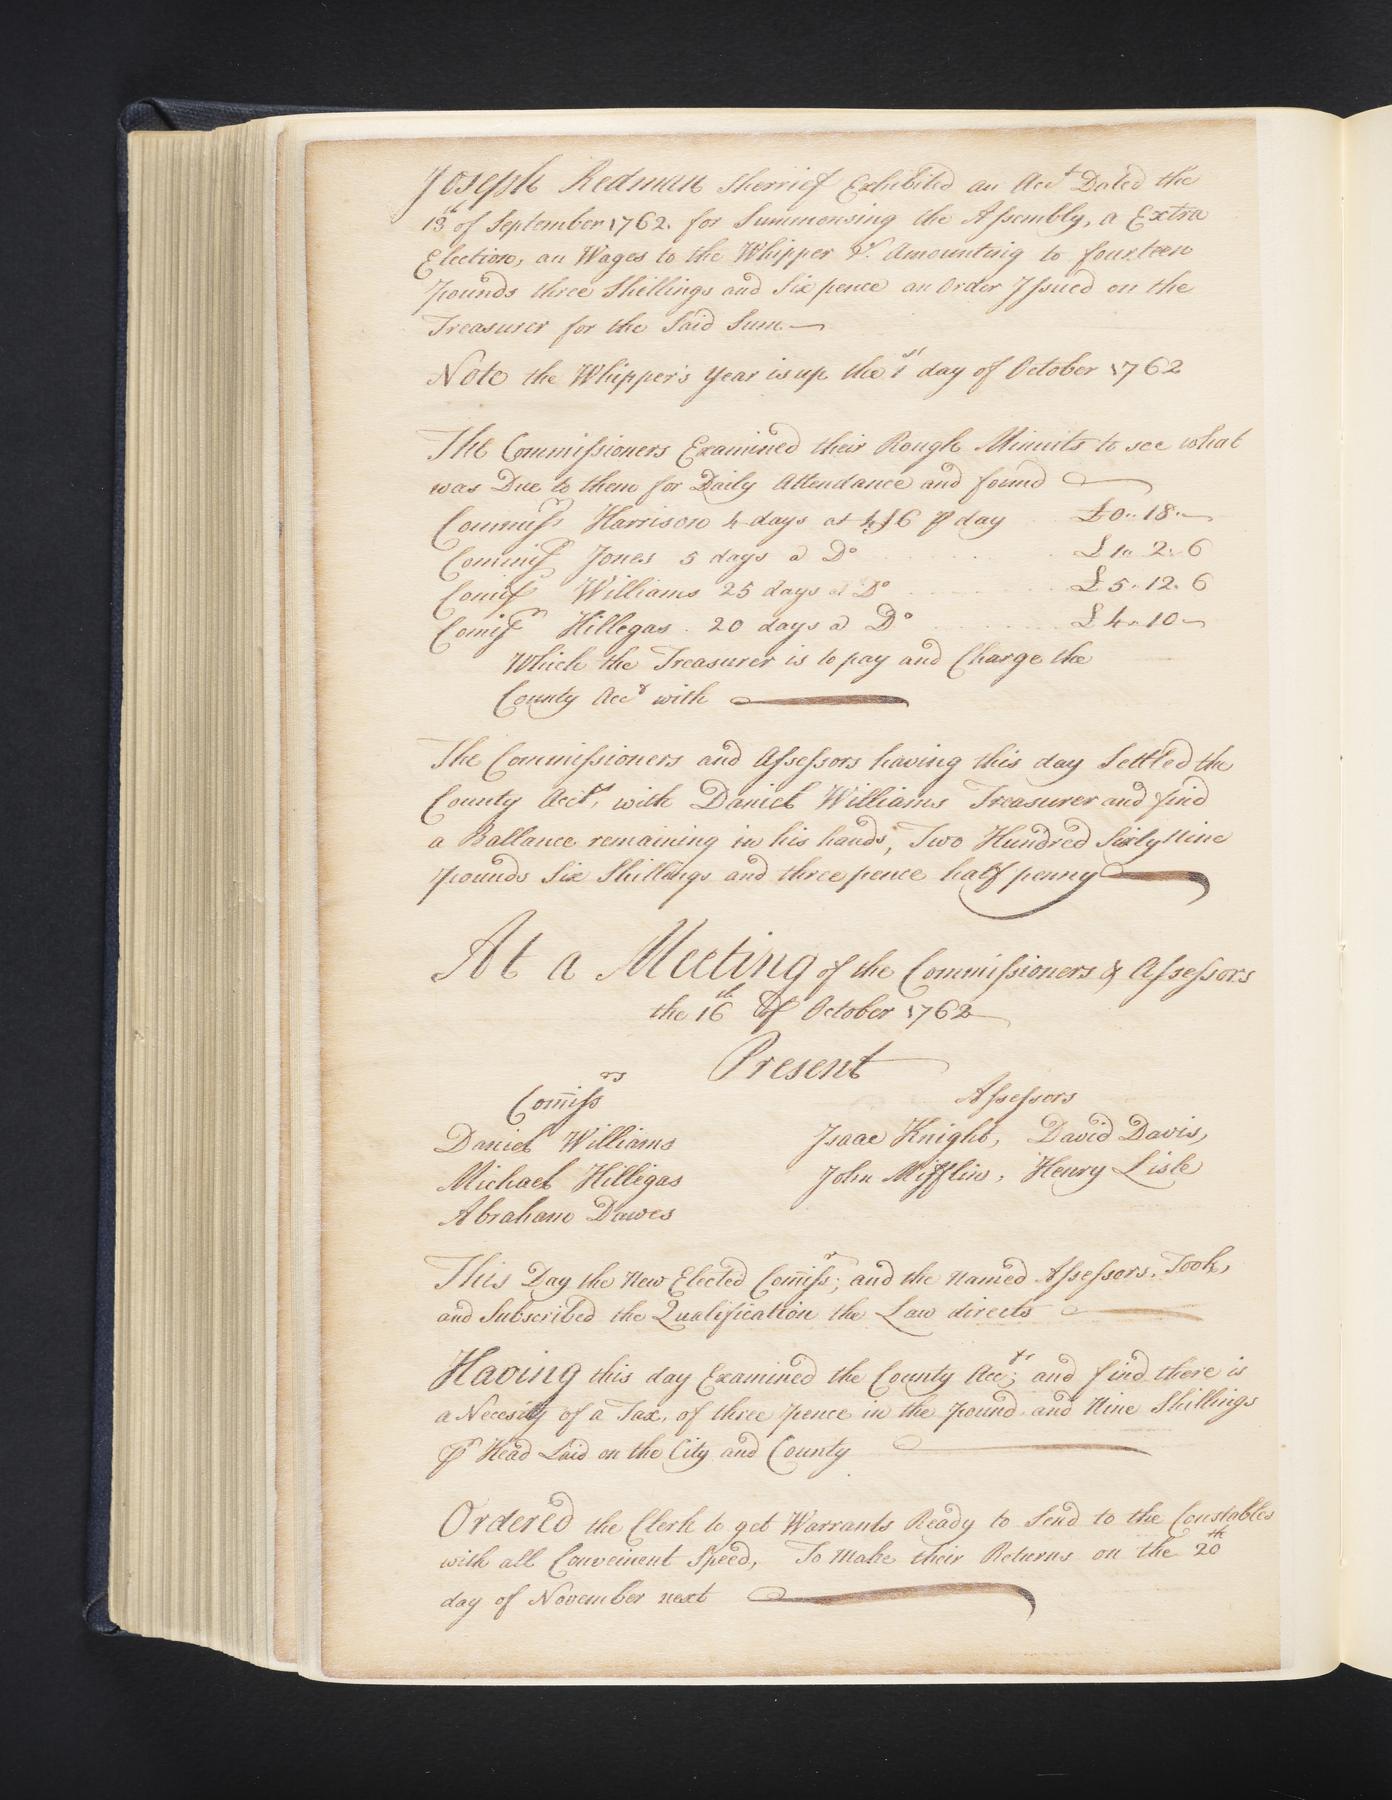 Joseph Redman Sherrief Exhibited an Acct Dated the
13th of September 1762. for Summonsing the Assembly, a Extra
Election, an Wages to the Whipper &c. Amounting to fourteen
pounds three Shillings and Six pence an Order Issued on the
Treasurer for the Said Sum
Note the Whipper's Year is up the 1st day of October 1762
The Commissioners Examined their Rough Minuits to see what
was Due to them for Daily Attendance and found
Commissr Harrison 4 days at 4/6 ⅌ day £0..18..
Commissr Jones 5 days a Do £1..2..6
Comissr Williams 25 days at Do £5..12..6
Comissr Hillegas. 20 days a Do £4..10
Which the Treasurer is to pay and Charge the
County Acct with
The Commissioners and Assessors having this day Settled the
County Accts, with Daniel Williams Treasurer and find
a Ballance remaining in his hands, Two Hundred Sixty Nine
pounds Six Shillings and three pence half penny
At a Meeting of the Commissioners & Assessors
the 16th of October 1762
Present
Com̄issrs Assessors
Daniel Williams Isaac Knight, David Davis,
Michael Hilligas John Mifflin, Henry Lisle
Abraham Dawes
This Day the New Elected Com̄issr; and the Named Assessors. Took,
and Subscribed the Qualification the Law directs
Having this day Examined the County Accts; and find there is
a Necesity of a Tax, of three pence in the pound and Nine Shillings
⅌r Head Laid on the City and County
Ordered the Clerk to get Warrants Ready to Send to the Constables
with all Conveinent Speed, To Make their Returns on the 20th
day of November next